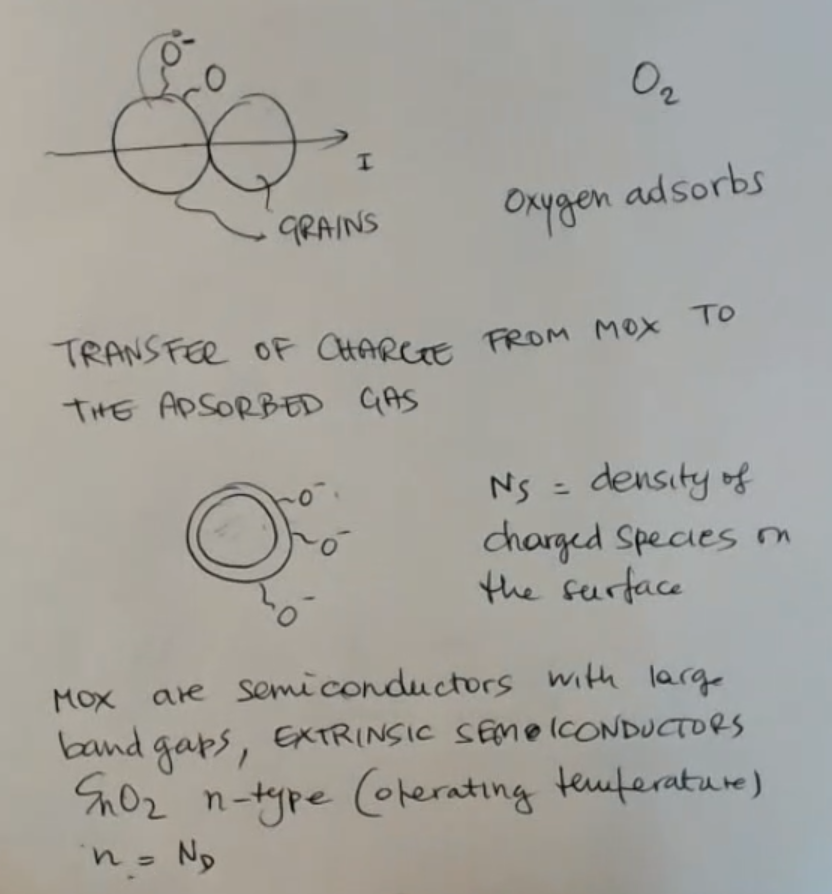 O⁻
O
O₂
I
Oxygen adsorbs
GRAINS
TRANSFER OF CHARGE FROM MOX TO
THE ADSORBED GAS
O⁻
O⁻
O⁻
Ns = density of
charged species on
the surface
MOX are semiconductors with large
band gaps, EXTRINSIC SEMICONDUCTORS
SnO₂ n-type (operating temperature)
n = N_D